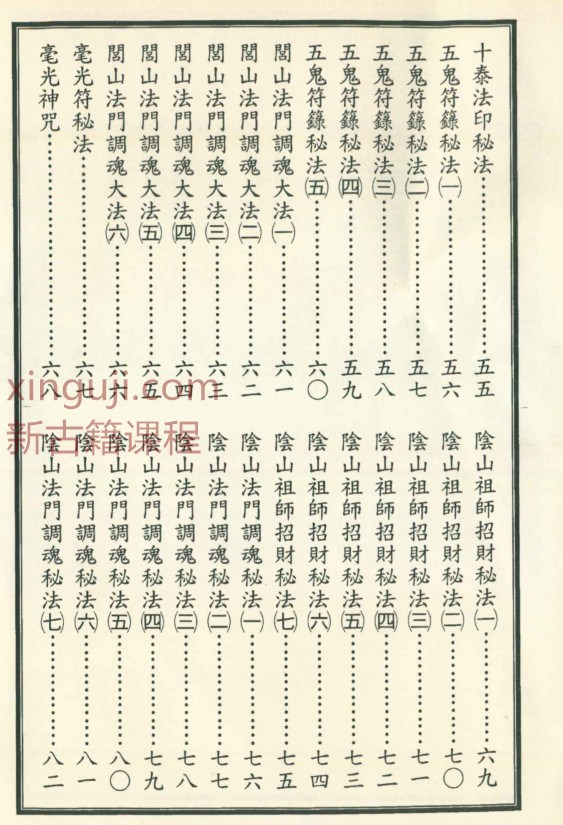 十泰法印秘法⋯⋯五五
五鬼符籙秘法㈠⋯⋯五六
五鬼符籙秘法㈡⋯⋯五七
五鬼符籙秘法㈢⋯⋯五八
五鬼符籙秘法㈣⋯⋯五九
五鬼符籙秘法㈤⋯⋯六〇
閭山法門調魂大法㈠⋯⋯六一
閭山法門調魂大法㈡⋯⋯六二
閭山法門調魂大法㈢⋯⋯六三
閭山法門調魂大法㈣⋯⋯六四
閭山法門調魂大法㈤⋯⋯六五
閭山法門調魂大法㈥⋯⋯六六
毫光符秘法⋯⋯六七
毫光神咒⋯⋯六八
陰山祖師招財秘法㈠⋯⋯六九
陰山祖師招財秘法㈡⋯⋯七〇
陰山祖師招財秘法㈢⋯⋯七一
陰山祖師招財秘法㈣⋯⋯七二
陰山祖師招財秘法㈤⋯⋯七三
陰山祖師招財秘法㈥⋯⋯七四
陰山祖師招財秘法㈦⋯⋯七五
陰山法門調魂秘法㈠⋯⋯七六
陰山法門調魂秘法㈡⋯⋯七七
陰山法門調魂秘法㈢⋯⋯七八
陰山法門調魂秘法㈣⋯⋯七九
陰山法門調魂秘法㈤⋯⋯八〇
陰山法門調魂秘法㈥⋯⋯八一
陰山法門調魂秘法㈦⋯⋯八二
xinguji.com
新古籍课程